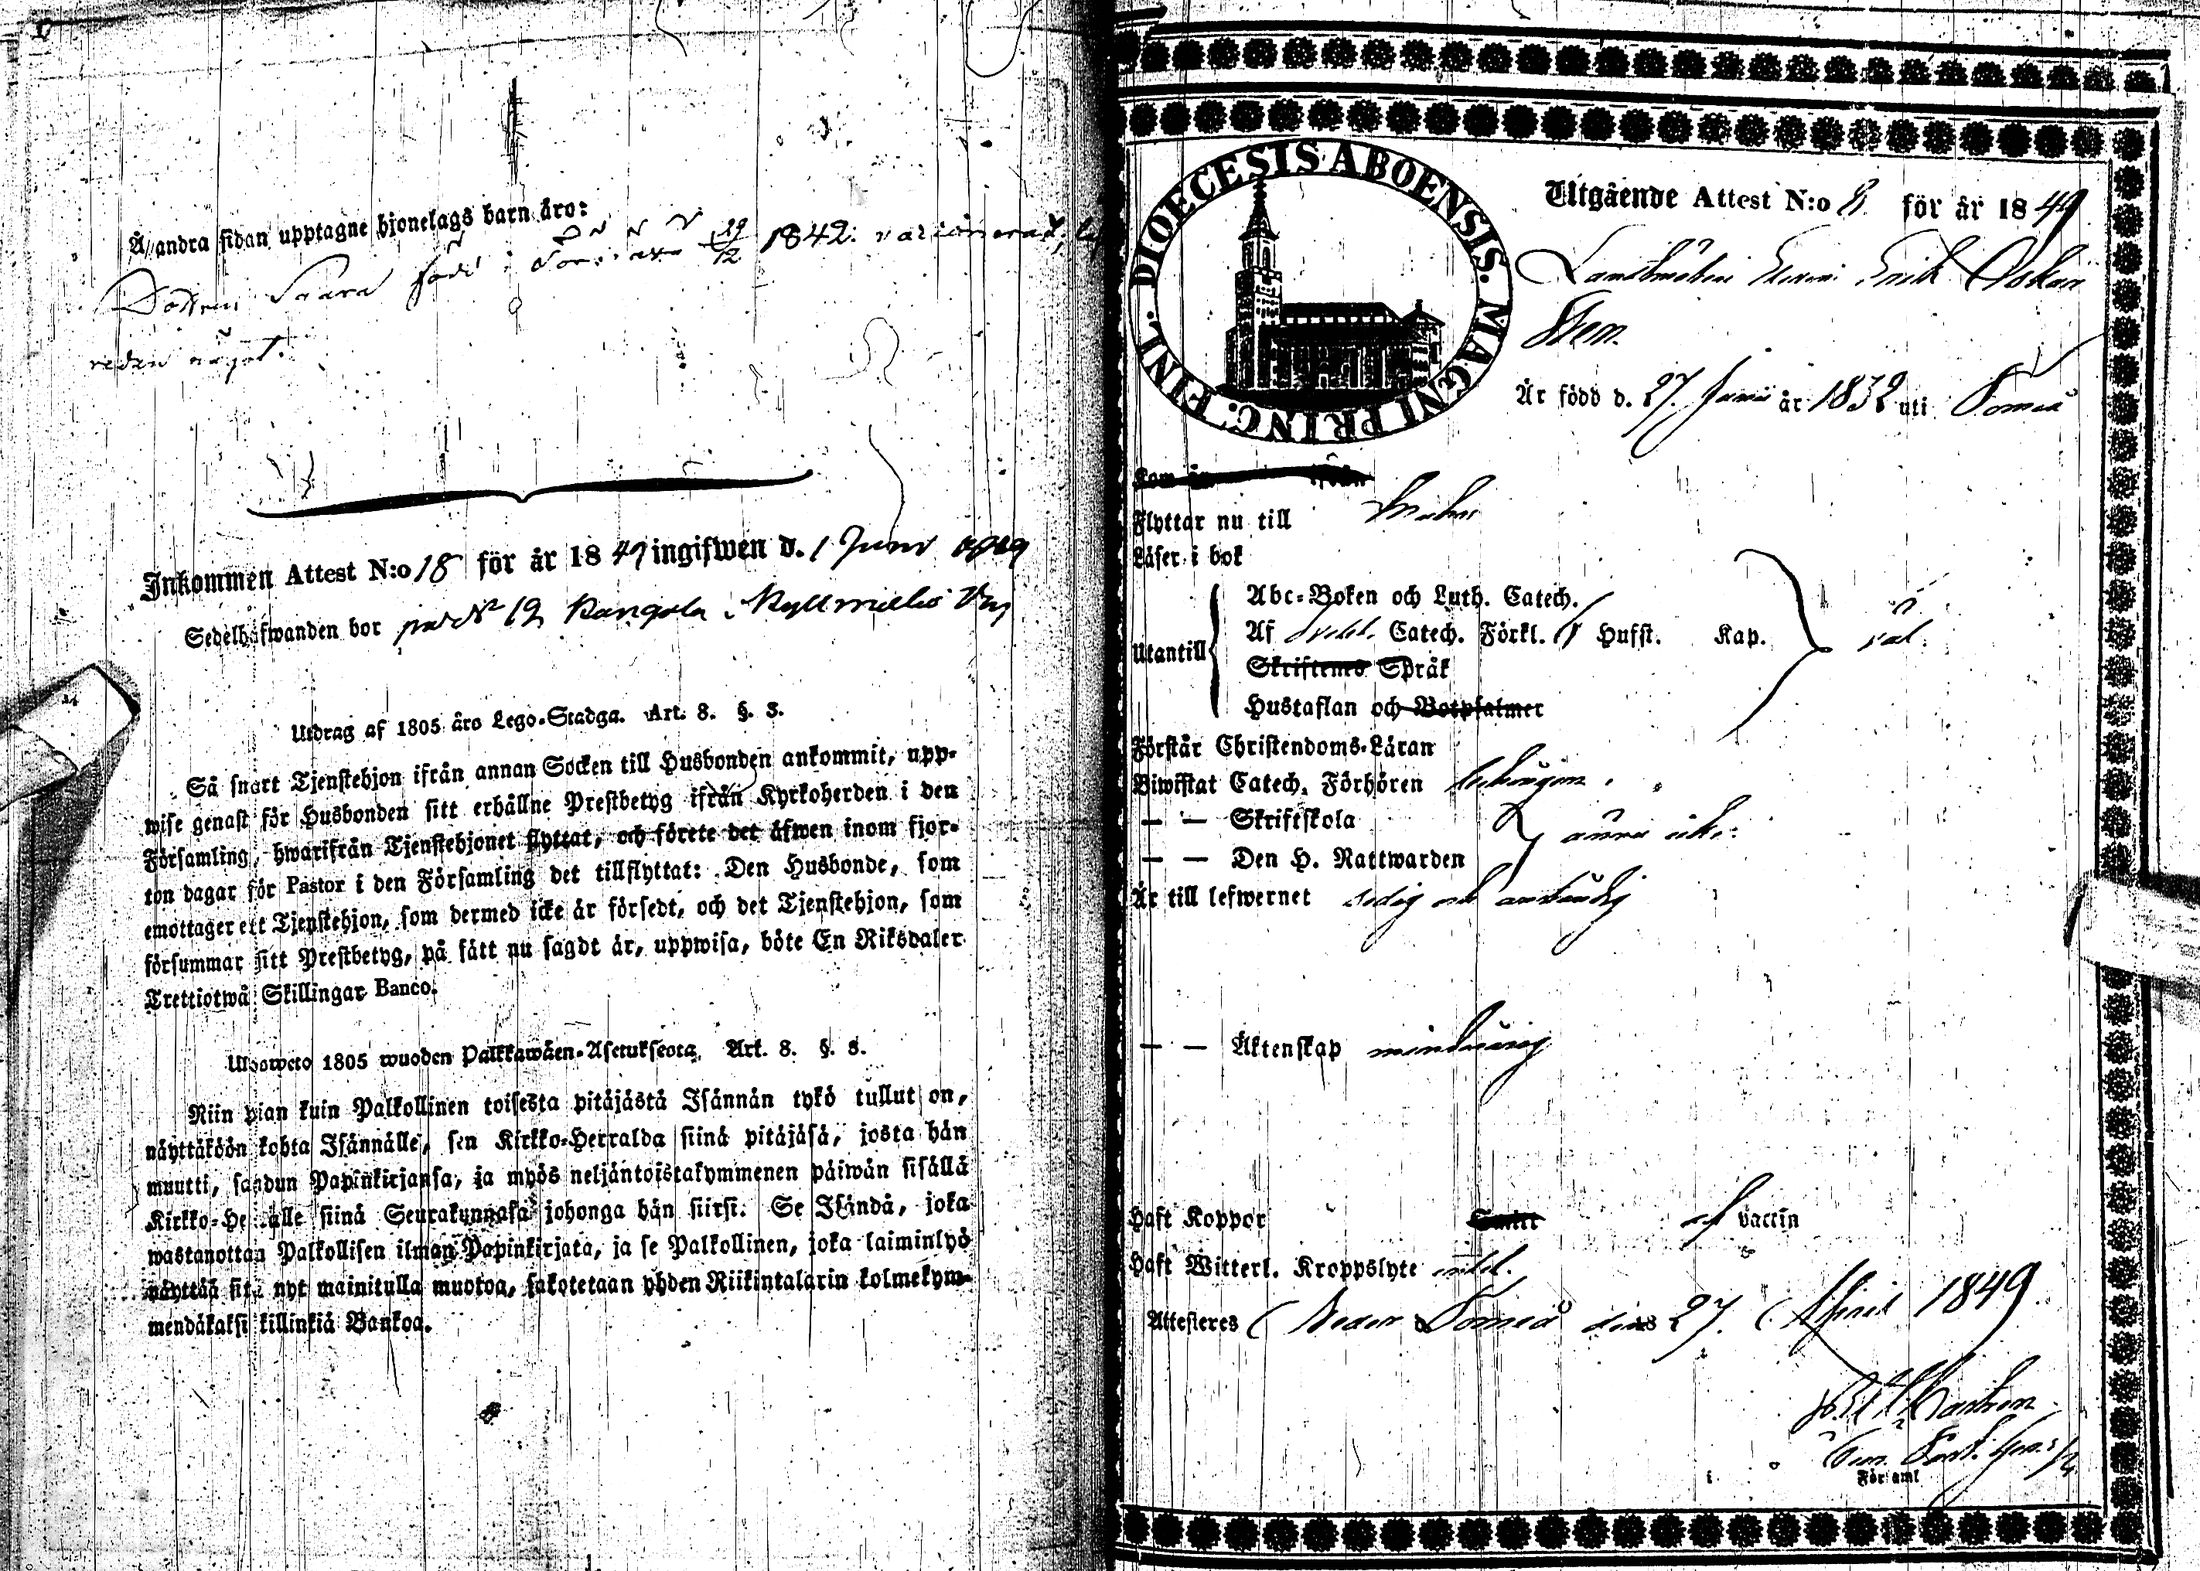 Å andra sidan upptagne hjonelags barn äro:
Dottren Saara född i 29/12 1842:
redan något.
Inkommen Attest N:o 18 för år 1849 ingifwen d. 1 Juni 1849
Sedelhafwanden bor på N 12 Kangola
Utdrag af 1805 års Lego-Stadga. Art. 8. §. 3.
Så snart Tjenstehjon ifrån annan Socken till Husbonden ankommit, upp-
wise genast för Husbonden sitt erhållne Prestbetyg ifrån Kyrkoherden i den
Församling, hwarifrån Tjenstehjonet flyttat, och förete det äfwen inom fjor-
ton dagar för Pastor i den Församling det tillflyttat: Den Husbonde, som
emottager ett Tjenstehjon, som dermed icke är försedt, och det Tjenstehjon, som
försummar sitt Prestbetyg, på sätt nu sagdt är, uppwisa, böte En Riksdaler
Trettiotwå Skillingar Banco.
Ulosweto 1805 wuoden Palkkawäen-Asetuksesta, Art. 8. §. 3.
Niin pian kuin Palkollinen toisesta pitäjästä Isännän tykö tullut on,
näyttäköön kohta Isännälle, sen Kirkko-Herralda siinä pitäjäsä, josta hän
muutti, saadun Papinkirjansa, ja myös neljäntoistakymmenen päiwän sisällä
Kirkko-Herralle siinä Seurakunnasa johonga hän siirsi. Se Isändä, joka
wastanottaa Palkollisen ilman Papinkirjata, ja se Palkollinen, joka laiminlyö
näyttää sitä nyt mainitulla muotoa, sakotetaan yhden Riikintalarin kolmekym-
mendäkaksi killinkiä Bankoa.
DIOECESIS ABOENSIS. MAGNI PRINC. FINL.
Utgående Attest N:o 8. för år 1849
Landtmäteri Erik Oskar
Är född d. 27. Junii år 1832 uti Torneå
Kom år ifrån
Flyttar nu till
Läser i bok
Utantill
Abc-Boken och Luth. Catech.
Af Catech. Förkl. Hufst. Kap. väl.
Skriftenes Språk
Hustaflan och Botpsalmer
Förstår Christendoms-Läran
Biwistat Catech. Förhören
— — Skriftskola
ännu icke.
— — Den H. Nattwarden
Är till lefwernet sedig och anständig
— — Äktenskap minderårig
Haft Koppor Smitt af vaccin
Haft Witterl. Kroppslyte intet.
Attesteres Neder Torneå den 27. April 1849
Församl